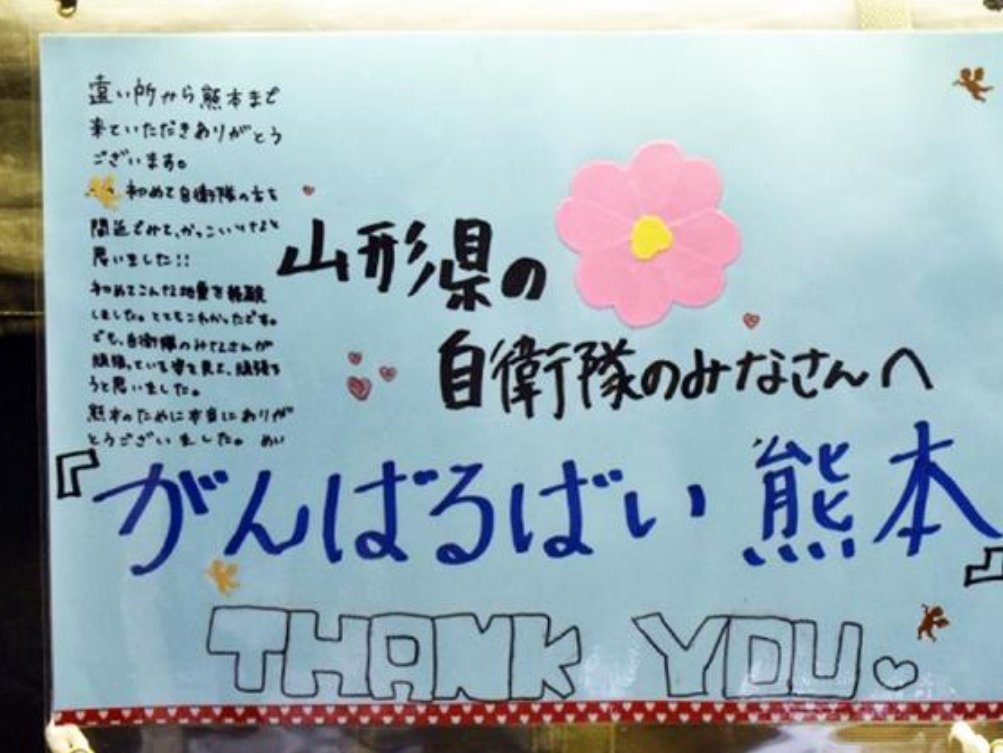 遠い所から熊本まで
来ていただきありがとう
ございます。
初めて自衛隊の方を
間近でみて、かっこいいなと
思いました!!
初めてこんな地震を経験
しました。とてもこわかったです。
でも、自衛隊のみなさんが
頑張っている姿を見て、頑張ろ
うと思いました。
熊本のために本当にありが
とうございました。 めい
山形県の
自衛隊のみなさんへ
『がんばるばい熊本』
THANK YOU